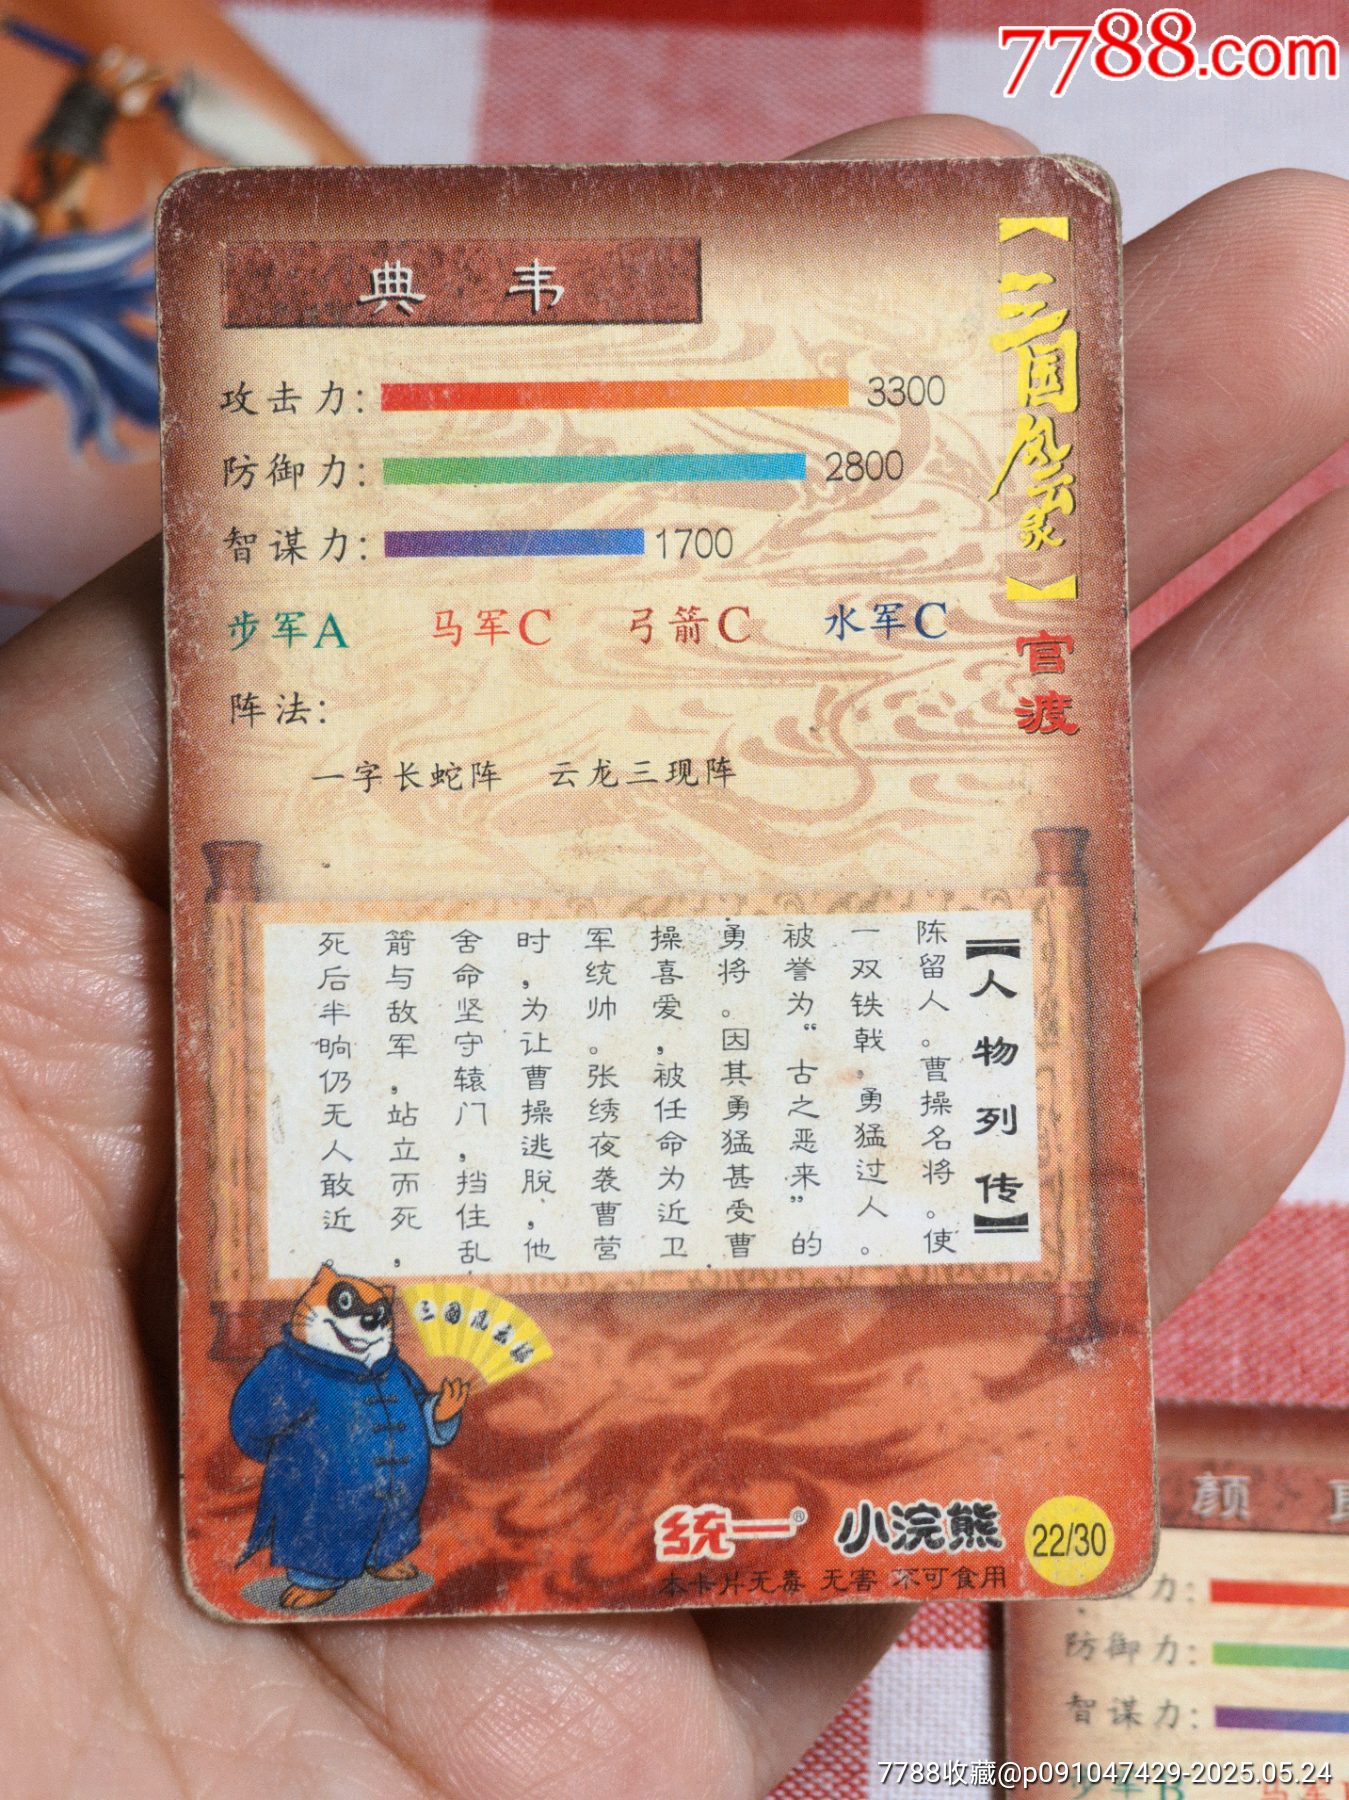 7788.com
典 韦
【三国风云录】
官渡
攻击力: 3300
防御力: 2800
智谋力: 1700
步军A 马军C 弓箭C 水军C
阵法:
一字长蛇阵 云龙三现阵
【人物列传】
陈留人。曹操名将。使
一双铁戟,勇猛过人。
被誉为“古之恶来”的
勇将。因其勇猛甚受曹
操喜爱,被任命为近卫
军统帅。张绣夜袭曹营
时,为让曹操逃脱,他
舍命坚守辕门,挡住乱
箭与敌军,站立而死,
死后半晌仍无人敢近。
三国风云录
统一® 小浣熊 22/30
本卡片无毒 无害 不可食用
颜
力:
防御力:
智谋力:
步军B
7788收藏@p091047429-2025.05.24